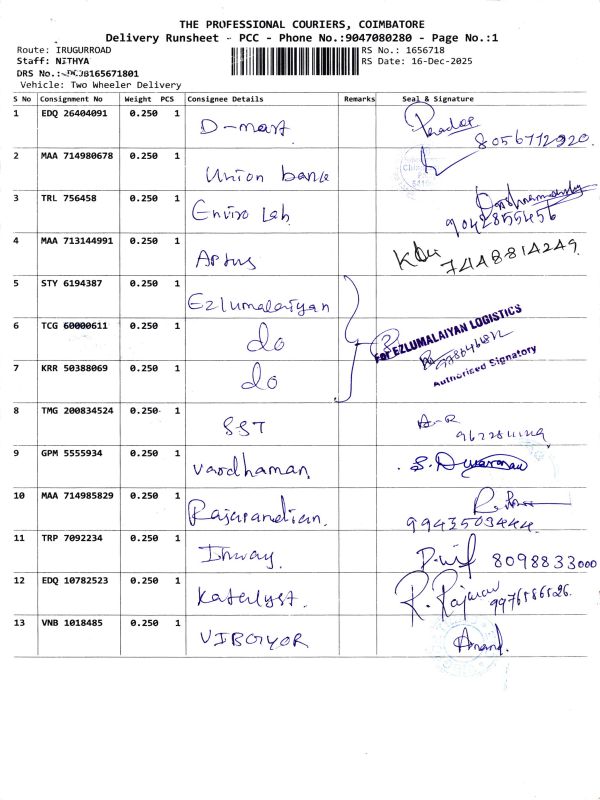 THE PROFESSIONAL COURIERS, COIMBATORE
Delivery Runsheet - PCC - Phone No.:9047080280 - Page No.:1
Route: IRUGURROAD RS No.: 1656718
Staff: NITHYA RS Date: 16-Dec-2025
DRS No.: PCOB165671801
Vehicle: Two Wheeler Delivery
S No Consignment No Weight PCS Consignee Details Remarks Seal & Signature
1 EDQ 26404091 0.250 1 D-mart Pradap 8056712920
2 MAA 714980678 0.250 1 Union bank
3 TRL 756458 0.250 1 Enviro Lab 9042855456
4 MAA 713144991 0.250 1 Aptus 7448814249
5 STY 6194387 0.250 1 Ezlumalaiyan
6 TCG 60000611 0.250 1 do
For EZLUMALAIYAN LOGISTICS
7 KRR 50388069 0.250 1 do
Authorised Signatory
8 TMG 200834524 0.250 1 SST
9 GPM 5555934 0.250 1 Vardhaman
10 MAA 714985829 0.250 1 Rajapandian. 9943503444.
11 TRP 7092234 0.250 1 Inway. 8098833000
12 EDQ 10782523 0.250 1 Katalyst. R. Rajavan 9976586526.
13 VNB 1018485 0.250 1 VIBGYOR Anand.